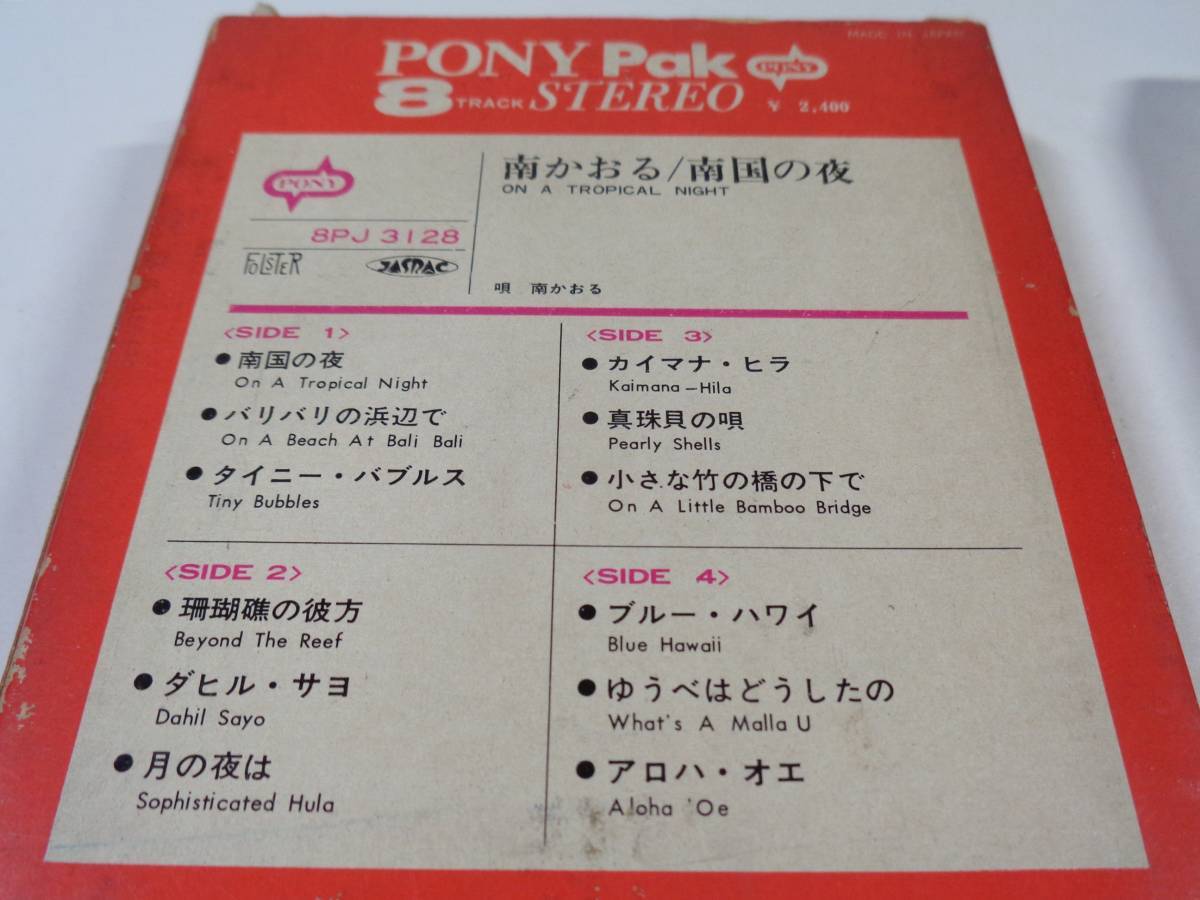 MADE IN JAPAN
PONY Pak PONY
8 TRACK STEREO ¥ 2,400
PONY
南かおる/南国の夜
ON A TROPICAL NIGHT
8PJ 3128
FOLSTER JASRAC
唄 南かおる
<SIDE 1>
●南国の夜
On A Tropical Night
●バリバリの浜辺で
On A Beach At Bali Bali
●タイニー・バブルス
Tiny Bubbles
<SIDE 2>
●珊瑚礁の彼方
Beyond The Reef
●ダヒル・サヨ
Dahil Sayo
●月の夜は
Sophisticated Hula
<SIDE 3>
●カイマナ・ヒラ
Kaimana-Hila
●真珠貝の唄
Pearly Shells
●小さな竹の橋の下で
On A Little Bamboo Bridge
<SIDE 4>
●ブルー・ハワイ
Blue Hawaii
●ゆうべはどうしたの
What's A Malla U
●アロハ・オエ
Aloha 'Oe